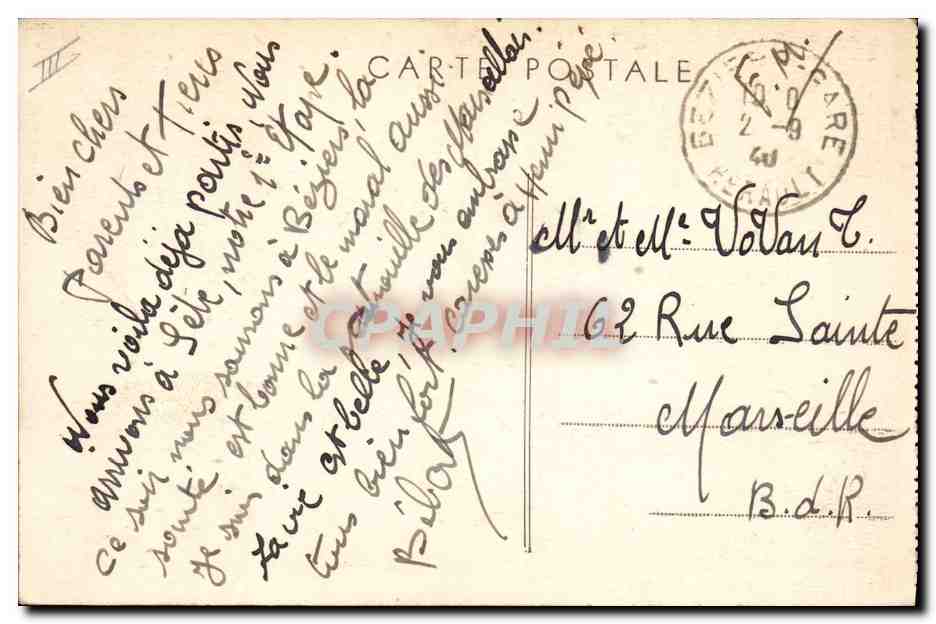 III
CARTE POSTALE
Bien chers
Parents et tiens
Nous voila déjà partis, nous
arrivons à Séte, notre 1e étape.
ce soir nous sommes à Béziers, la
santé est bonne et le moral aussi
Je suis dans la
des Marseillais.
La vie est belle. Je vous embrasse
tous bien fort. caresses à Henri pépé.
Bébert
BEZIERS GARE
2 - 9
40
HERAULT
Mr et Me VoVan T.
62 Rue Sainte
Marseille
B.d.R.
CPAPHIL